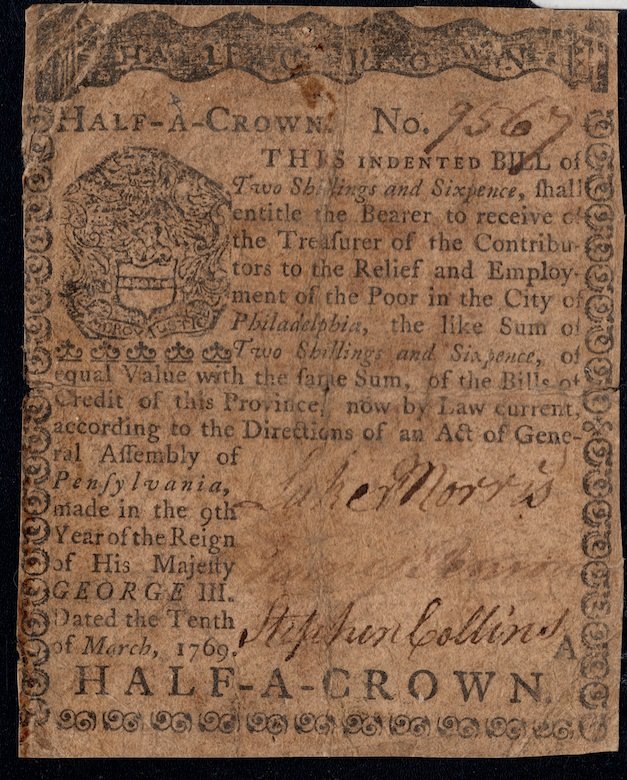 HALF A CROWN
HALF-A-CROWN. No. 9567
THIS INDENTED BILL of
Two Shillings and Sixpence, ſhall
entitle the Bearer to receive of
the Treaſurer of the Contribu-
tors to the Relief and Employ-
ment of the Poor in the City of
Philadelphia, the like Sum of
Two Shillings and Sixpence, of
equal Value with the ſame Sum, of the Bills of
Credit of this Province, now by Law current,
according to the Directions of an Act of Gene-
ral Aſſembly of
Penſylvania,
made in the 9th
Year of the Reign
of His Majeſty
GEORGE III.
Dated the Tenth
of March, 1769.
Luke Morris
Stephen Collins
A
HALF-A-CROWN.